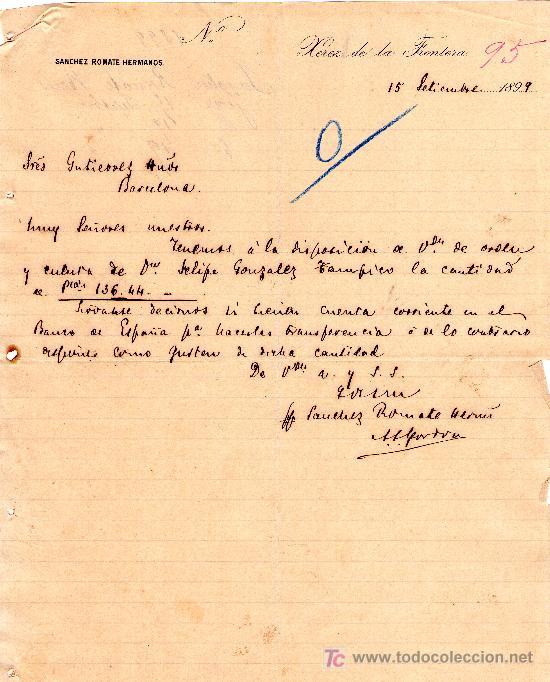 Nº
SANCHEZ ROMATE HERMANOS.
Xérez de la Frontera 95
15 Setiembre 1899
Sres Gutierrez Hnos
Barcelona.
Muy Señores nuestros.
Tenemos á la disposicion de Vdes de orden
y cuenta de Dn Felipe Gonzalez Tampico la cantidad
de Ptas 136.44.-
Sirvanse decirnos si tienen cuenta corriente en el
Banco de España pa hacerles transferencia ó de lo contrario
disponer como gusten de dicha cantidad
De Vdes a. y S. S.
Sanchez Romate Herms
TC www.todocoleccion.net